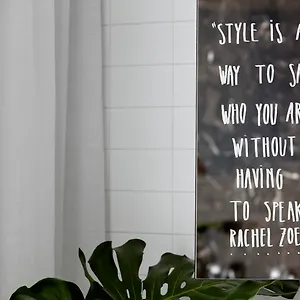 "STYLE IS A
WAY TO SA
WHO YOU AR
WITHOUT
HAVING
TO SPEAK
RACHEL ZOE